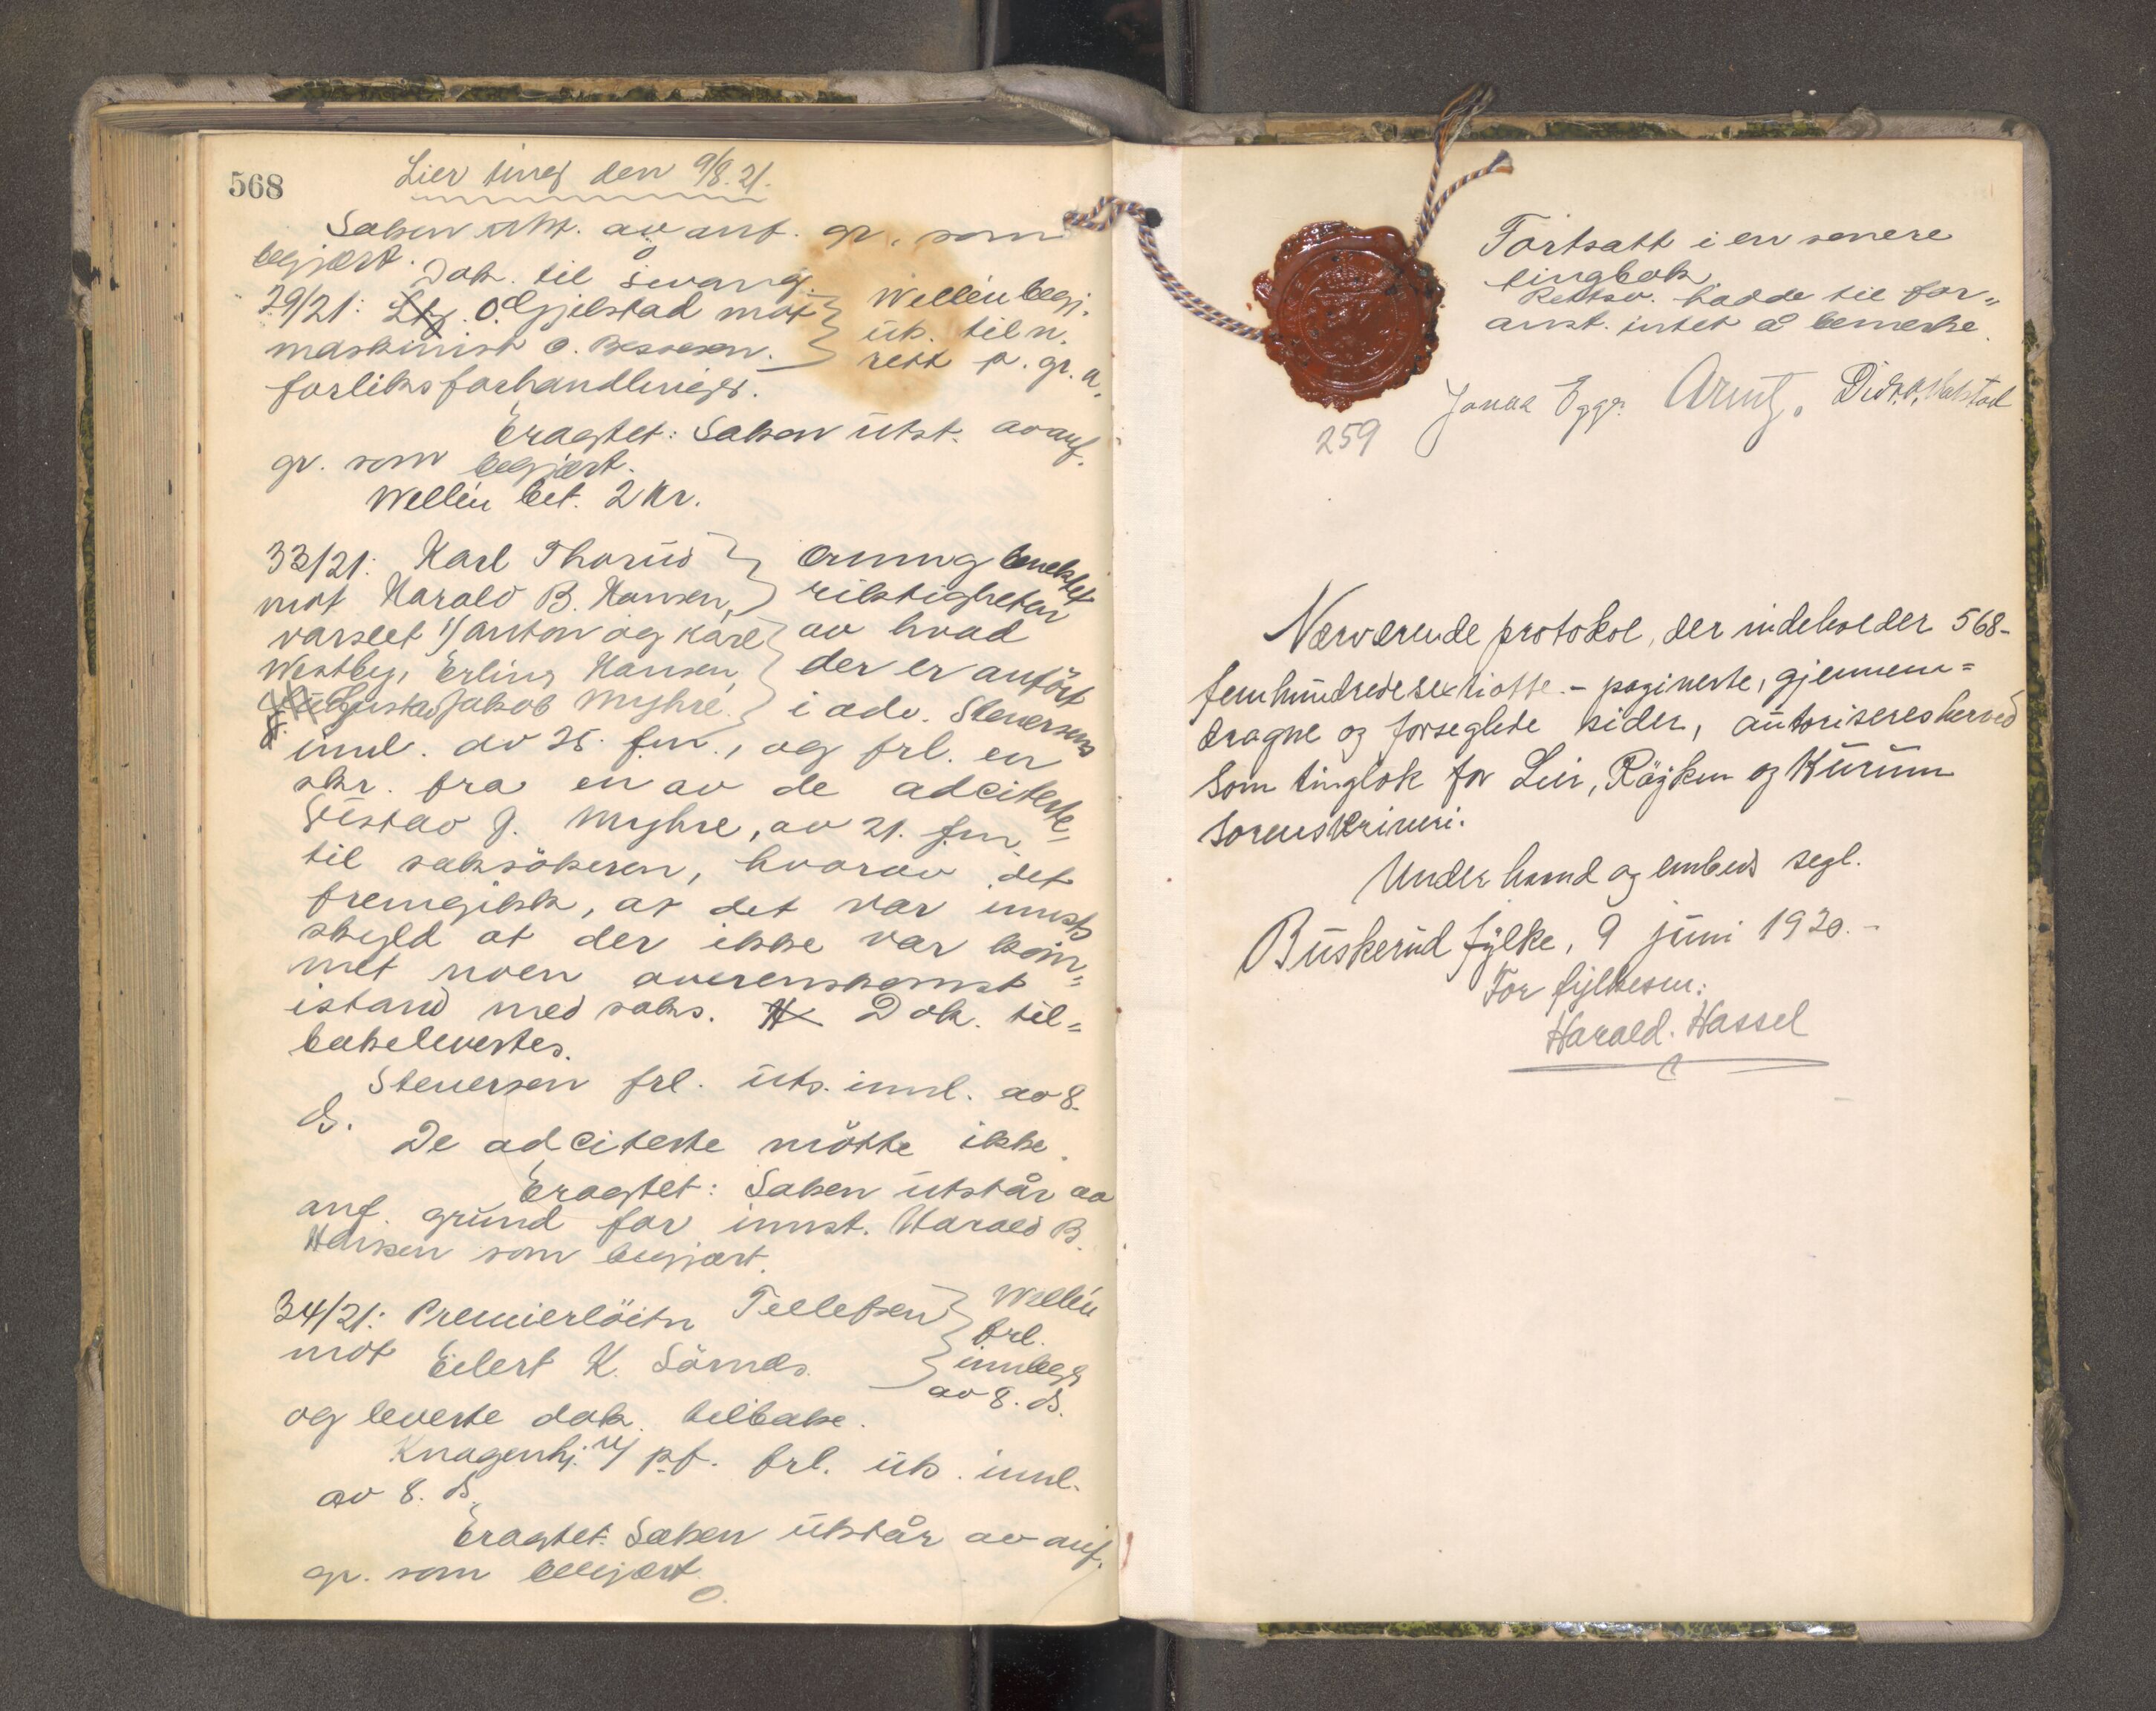 568
Lier ting den 9/8. 21.
Saken utst. av anf. gr. som
begjært.
Dok. til Svang.
29/21: O. Gjilstad mot } Wellén begj.
maskinist O. Bessesen. } uts. til n.
rett p. gr. a.
forliksforhandlinger.
Eragtet: Saken utst. av anf.
gr. som begjært.
Wellén bet. 2 Kr.
33/21: Karl Thorud } benektet
mot Harald B. Hansen, } riktigheten
varslet 1/ Anton og Kåre } av hvad
Westby, Erling Hansen, } der er anført
Gustav Jakob Myhre. } i adv. Steversens
innl. av 25. f.m., og frl. en
skr. fra en av de adciterte
Gustav J. Myhre, av 21. f.m.
til saksökeren, hvorav det
fremgikk, at det var innst.s
skyld at der ikke var kom=
met noen overenskomst
istand med saks. Dok. til=
bakelevertes.
Steversen frl. uts. innl. av 8.
ds.
De adciterte mötte ikke.
Eragtet: Saken utstår av
anf. grund for innst. Harald B.
Hansen som begjært.
34/21: Premierlöitn Tellefsen } Wellén
mot Eilert K. Sörnes. } frl.
innlegg
av 8. ds.
og leverte dok. tilbake.
Knagenhj. v/ p.f. frl. uts. innl.
av 8. ds.
Eragtet: Saken utstår av anf.
gr. som begjært.
Fortsatt i en senere
tingbok
Rettsv. hadde til for=
anst. intet å bemerke.
Arntz.
259
Nærværende protokol, der indeholder 568-
femhundredesextiotte - paginerte, gjennem=
dragne og forseglede sider, autoriseres herved
som tingbok for Lier, Röyken og Hurum
sorenskriveri.
Under haand og embeds segl.
Buskerud fylke, 9 juni 1920.-
For fylkesm:
Harald. Hassel